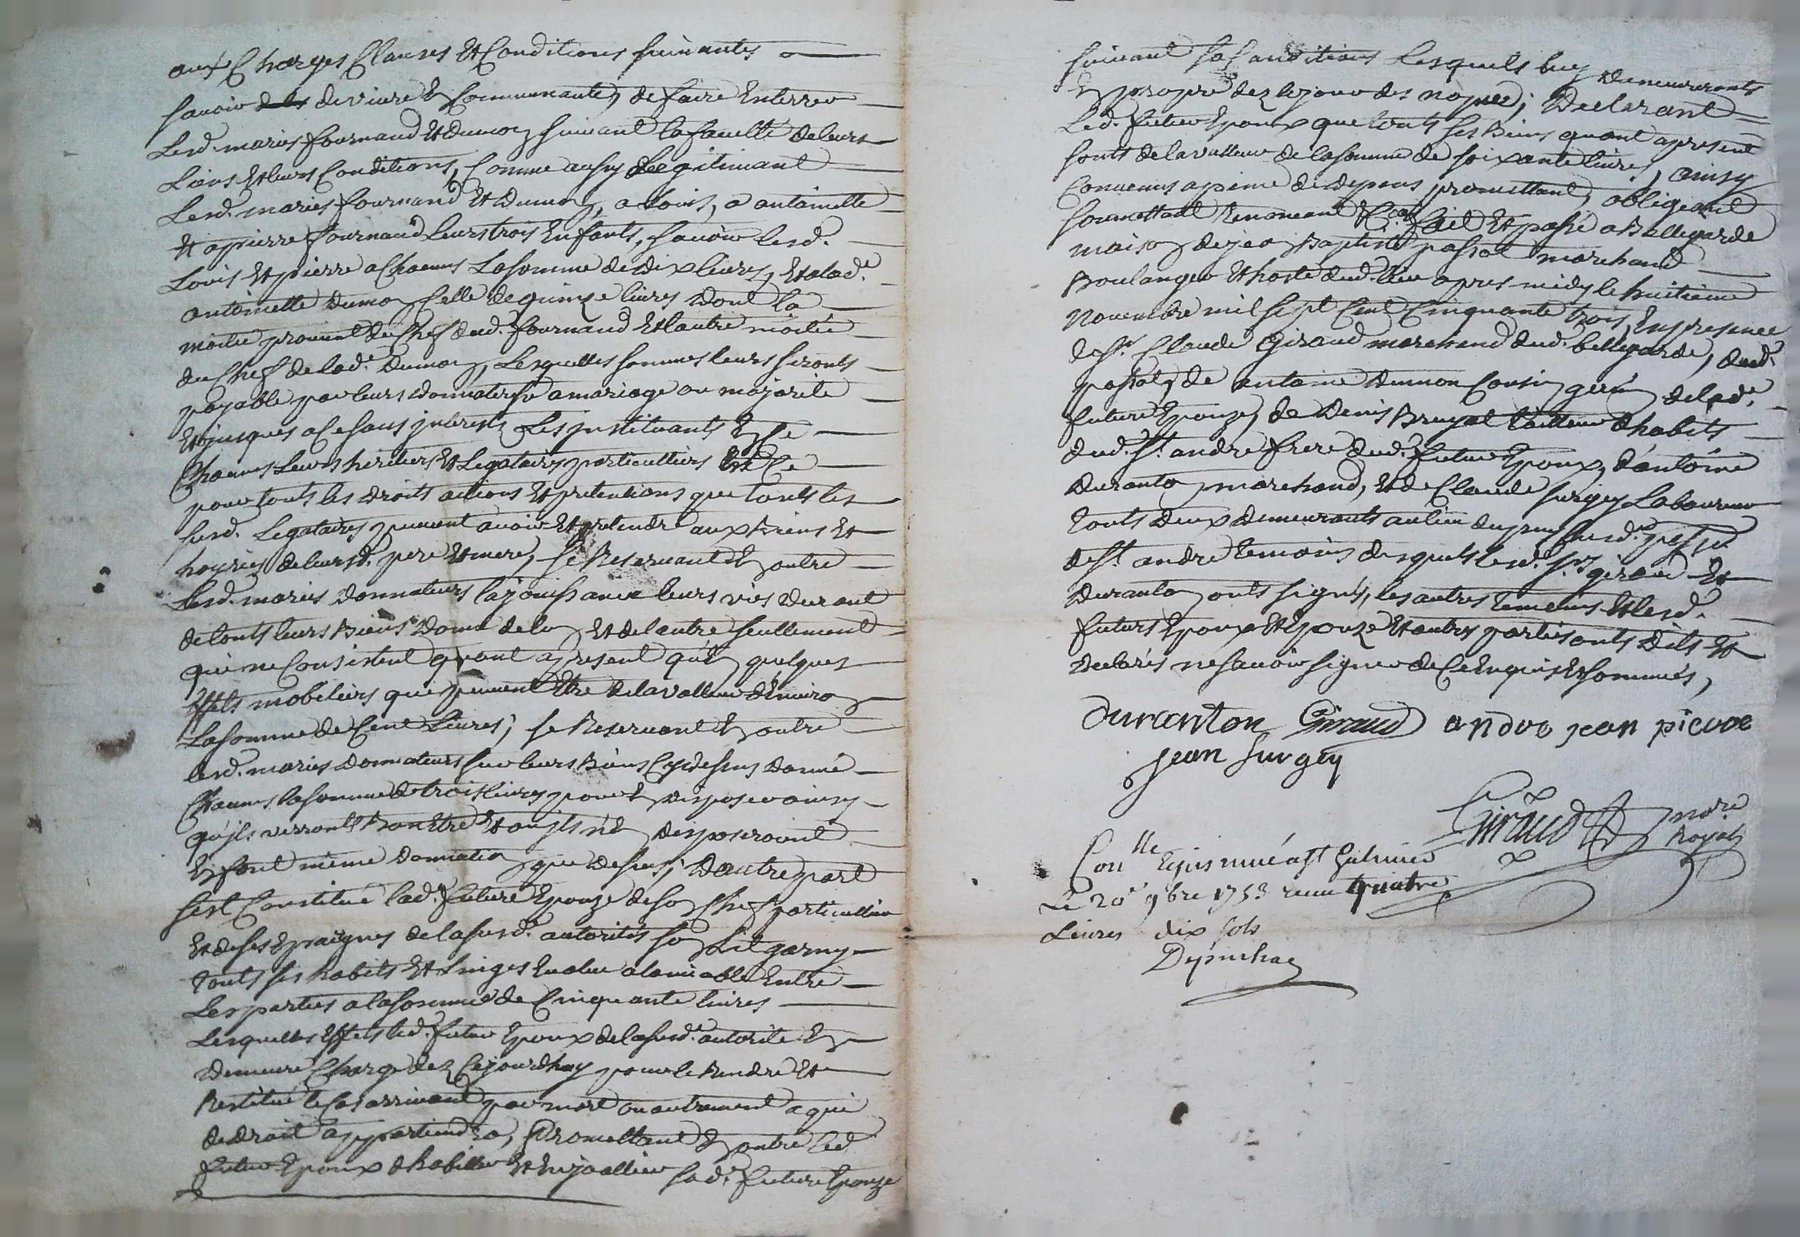 aux Charges Clauses et Conditions suivantes
savoir de vivre en Communauté, de faire enterrer
lesd. mariés fournand et dumon suivant la faculté de leurs
biens et leurs Conditions, Comme aussy de légitimant
lesd. mariés fournand et dumon, a Louis, a antoinette
et a pierre fournand leurs trois Enfants, savoir lesd.
Louis et pierre a Chacuns la somme de dix livres, et a lad.e
antoinette dumon Celle de quinze livres dont la
moitié provient du Chef dud. fournand et l'autre moitié
du Chef de lad.e dumon, lesquelles sommes leurs seronts
payable par leurs donnateurs a mariage ou majorité
et jusques a ce sans interest, les instituants en ce
Chacuns leurs héritiers et legataires particulliers et ce
pour touts les droits actions et pretentions que touts les
susd. legataires peuvent avoir et pretendre aux biens et
hoyries de leursd. pere et mere, se Reservant en outre
lesd. mariés donnateurs la jouissance leurs vies durant
de touts leurs Biens donné de l'un et de l'autre seullement
qui ne Consistent quant apresent qu'en quelques
Effets mobiliers qui peuvent Etre de la valleur d'Environ
la somme de Cent Livres; se Reservant en outre
lesd. mariés donnateurs sur leurs Biens Cy dessus donné
Chacuns la somme de trois livres pour en disposer ainsy
qu'ils verronts Bon Etre et ou ils n'en disposeroint
En font même donnation que dessus; D'autre part
s'est Constitué lad.e future Epouze de son Chef particullier
et de ses Epargnes de la susd.e autorité son Lit garny
touts ses habits et linges Evalué a lamiable Entre
les parties a la somme de Cinquante livres
lesquelles Effets led. futur Epoux de la susd.e autorité En
demeure Chargé dez Cejourdhuy pour le Rendre et
Restitué le Cas arrivant par mort ou autrement a qui
de droit appartiendra, promettant en outre led.
futur Epoux d'habiller et Enjoailler sad.e future Epouze
suivant ses Conditions lesquels luy demeureronts
En propre dez le jour des nopces; Declarant
led. futur Epoux que touts ses Biens quant apresent
sonts de la valleur de la somme de soixante livres, ainsy
Convenus a peine de depens promettant, obligeant
soumettant Renonceant &c.a fait et passé a Bellegarde
maison de jean Baptiste passot marchand
Boulanger et hoste dud. lieu apres midy le huitieme
Novembre mil sept Cent Cinquante trois, En presence
de s.r Claude Giraud marchand dud. bellegarde, dud.
passot, de antoine dumon Cousin germain de lad.e
future Epouze, de Denis Bruyat tailleur d'habits
dud. S.t andré frere dud. futur Epoux, d'antoine
Duranton marchand, et de Claude surgey Laboureur
touts deux demeurants au lieu du puy susd.e psse
de S.t andré temoins desquels lesd. s.rs giraud et
Duranton onts signés, les autres temoins et lesd.
futurs Epoux et Epouze et autres parties onts dits et
declarés ne savoir signer de Ce Enquis et sommés,
duranton Giraud andré jean picose
jean Surgey
Giraud no.re Royal
Con.lle Registrué a S.t Galmier
Le 20.e 9bre 1753 reçu quatre
Livres dix sols
Depinhac